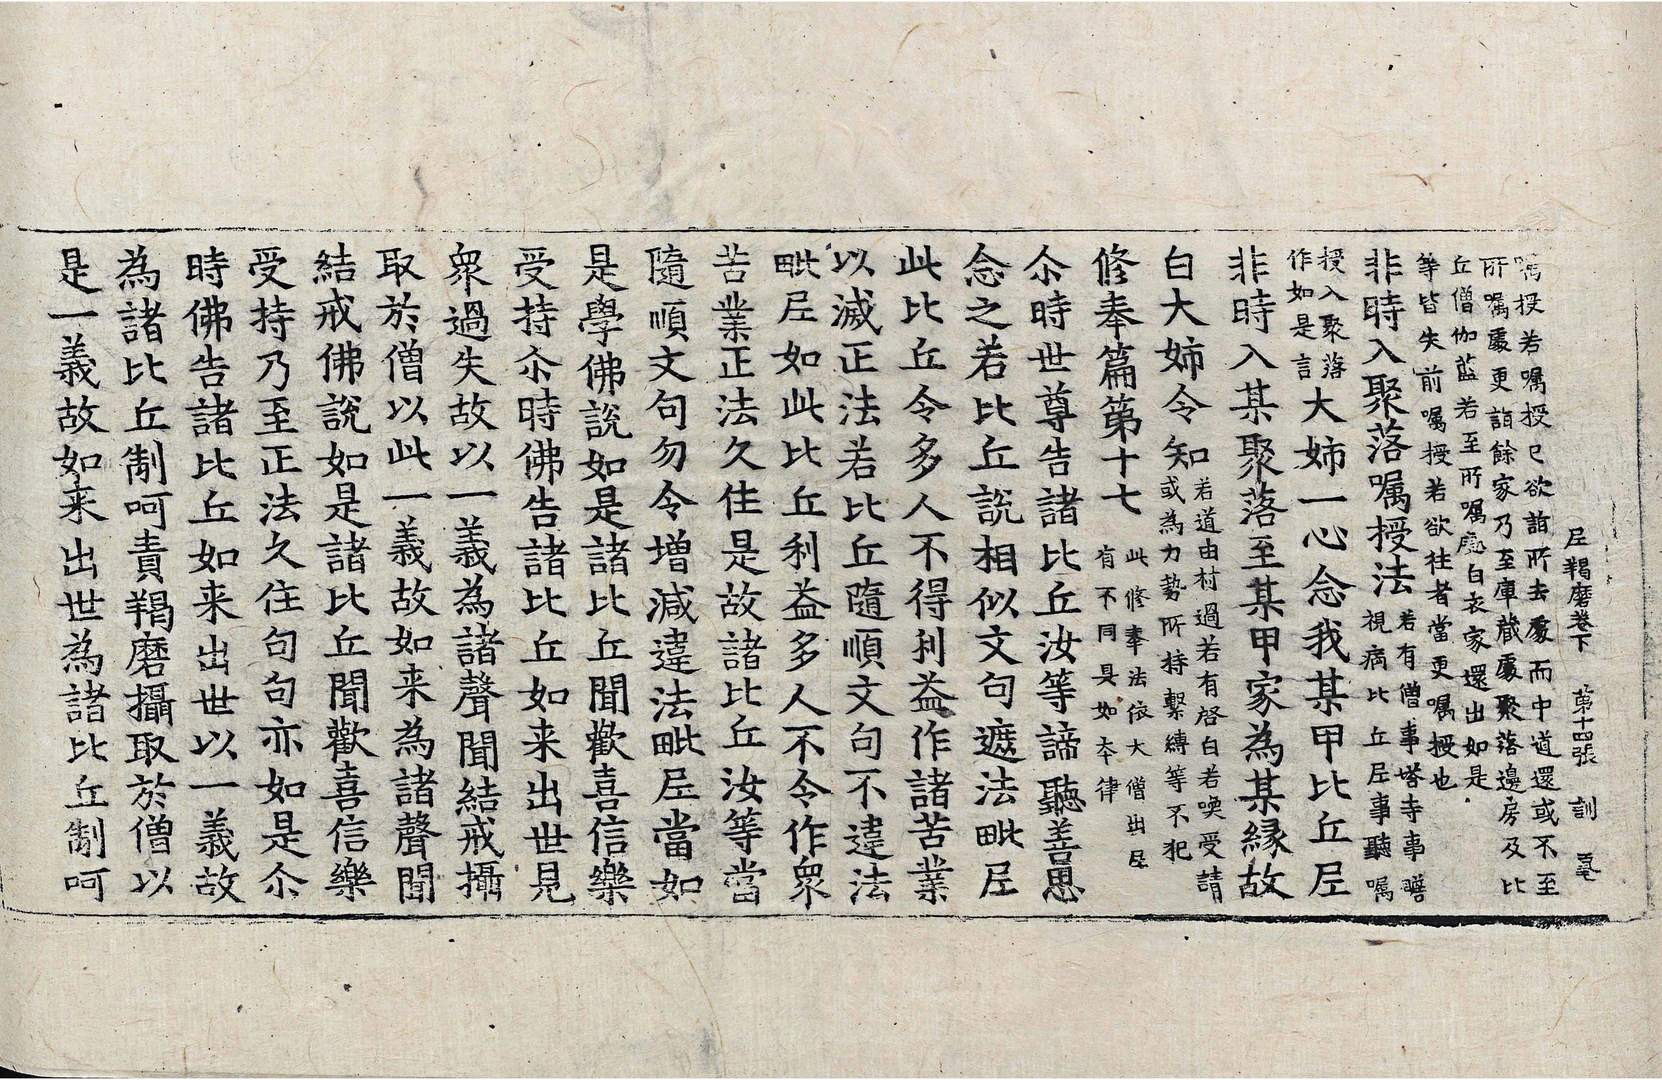 尼羯磨卷下　第十四張　訓
嘱授若嘱授已欲詣所去處而中道還或不至
所嘱處更詣餘家乃至庫藏處聚落邊房及比
丘僧伽藍若至所嘱處白衣家還出如是
等皆失前嘱授若欲往者當更嘱授也
非時入聚落嘱授法
若有僧事塔寺事瞻
視病比丘尼事聽嘱
授入聚落
作如是言
大姊一心念我某甲比丘尼
非時入某聚落至某甲家為某縁故
白大姉令知
若道由村過若有啓白若喚受請
或為力勢所持繫縛等不犯
修奉篇第十七
此修奉法依大僧出尼
有不同具如本律
尒時世尊告諸比丘汝等諦聽善思
念之若比丘說相似文句遮法毗尼
此比丘令多人不得利益作諸苦業
以滅正法若比丘隨順文句不違法
毗尼如此比丘利益多人不令作衆
苦業正法久住是故諸比丘汝等當
隨順文句勿令增減違法毗尼當如
是學佛說如是諸比丘聞歡喜信樂
受持尒時佛告諸比丘如来出世見
衆過失故以一義為諸聲聞結戒攝
取於僧以此一義故如来為諸聲聞
結戒佛說如是諸比丘聞歡喜信樂
受持乃至正法久住句句亦如是尒
時佛告諸比丘如来出世以一義故
為諸比丘制呵責羯磨攝取於僧以
是一義故如来出世為諸比丘制呵